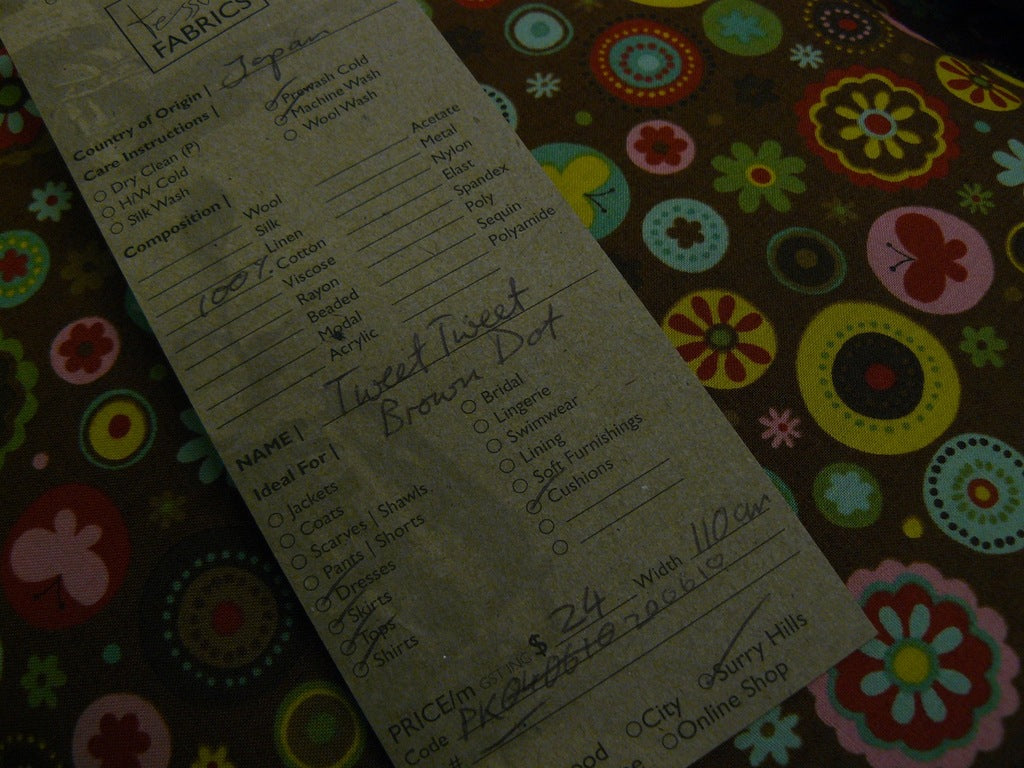 FABRICS
Country of Origin | Japan
Care Instructions |
Dry Clean (P)
H/W Cold
Silk Wash
Prewash Cold
Machine Wash
Wool Wash
Composition |
Wool
Silk
Linen
100% Cotton
Viscose
Rayon
Beaded
Modal
Acrylic
Acetate
Metal
Nylon
Elast
Spandex
Poly
Sequin
Polyamide
NAME | Tweet Tweet
Brown Dot
Ideal For |
Jackets
Coats
Scarves | Shawls
Pants | Shorts
Dresses
Skirts
Tops
Shirts
Bridal
Lingerie
Swimwear
Lining
Soft Furnishings
Cushions
PRICE/m GST INC $ 24 Width 110cm
Code
#
City
Surry Hills
Online Shop